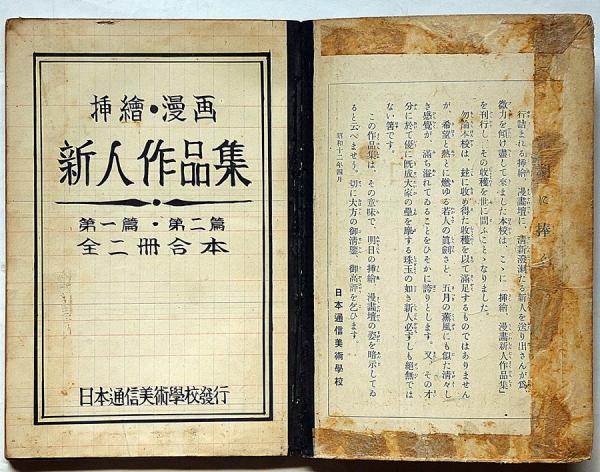 挿繪・漫画
新人作品集
第一篇・第二篇
全二冊合本
日本通信美術學校發行
に捧
行詰まれる挿繪、漫畫壇に、淸新溌溂たる新人を送り出さんが爲
微力を傾け盡して來ました本校は、こゝに「挿繪、漫畫新人作品集」
を刊行し、その收穫を世に問ふことゝなりました。
勿論本校は、玆に收め得た收穫を以て滿足するものではありません
が、希望と熱とに燃ゆる若人の眞劍さと、五月の薫風にも似た淸々し
き感覺が、滿ち溢れてゐることをひそかに誇りとします。又、その才
分に於て優に旣成大家の壘を摩する珠玉の如き新人必ずしも絕無では
ない筈です。
この作品集は、その意味で、明日の挿繪、漫畫壇の姿を暗示してゐ
ると云へませう。切に大方の御淸鑒、御高評を乞ひます。
昭和十二年四月
日本通信美術學校